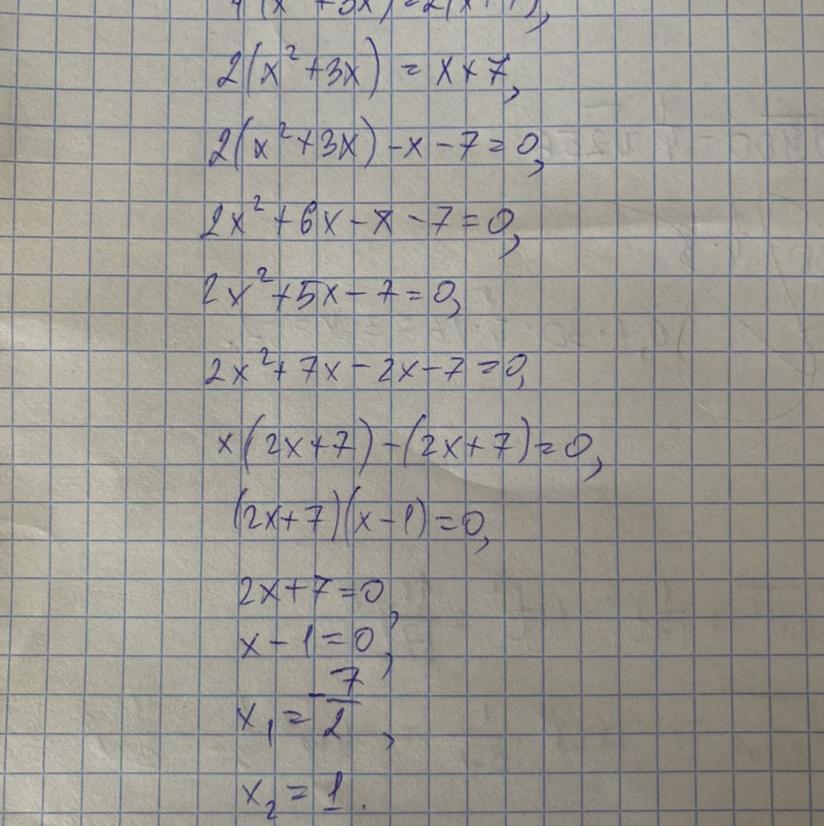 4(x² + 3x) = 2(x + 7),
2(x² + 3x) = x + 7,
2(x² + 3x) - x - 7 = 0,
2x² + 6x - x - 7 = 0,
2x² + 5x - 7 = 0,
2x² + 7x - 2x - 7 = 0,
x(2x + 7) - (2x + 7) = 0,
(2x + 7)(x - 1) = 0,
2x + 7 = 0,
x - 1 = 0,
x₁ = -7/2,
x₂ = 1.